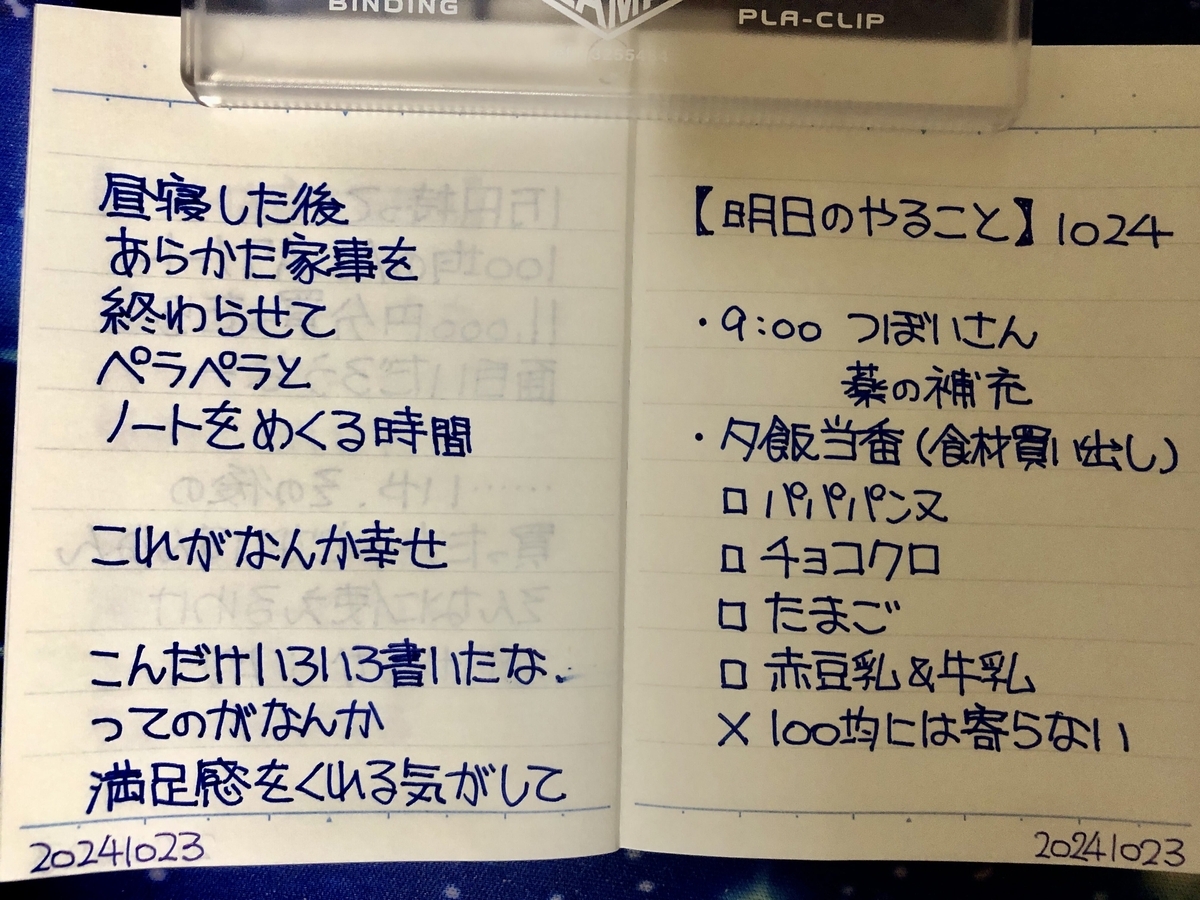 BINDING
PLA-CLIP
昼寝した後
あらかた家事を
終わらせて
ペラペラと
ノートをめくる時間
これがなんか幸せ
こんだけいろいろ書いたな、
ってのがなんか
満足感をくれる気がして
20241023
【明日のやること】1024
・9:00 つぼいさん
薬の補充
・夕飯当番(食材買い出し)
□ パパパパンヌ
□ チョコクロ
□ たまご
□ 赤豆乳&牛乳
× 100均には寄らない
20241023